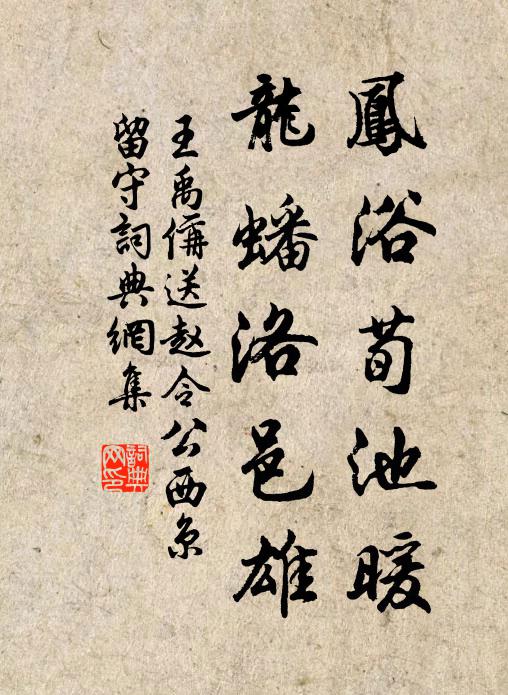 鳳浴荀池暖
龍蟠洛邑雄
王禹偁送赵令公西京
留守詞典網集
詞典
网印